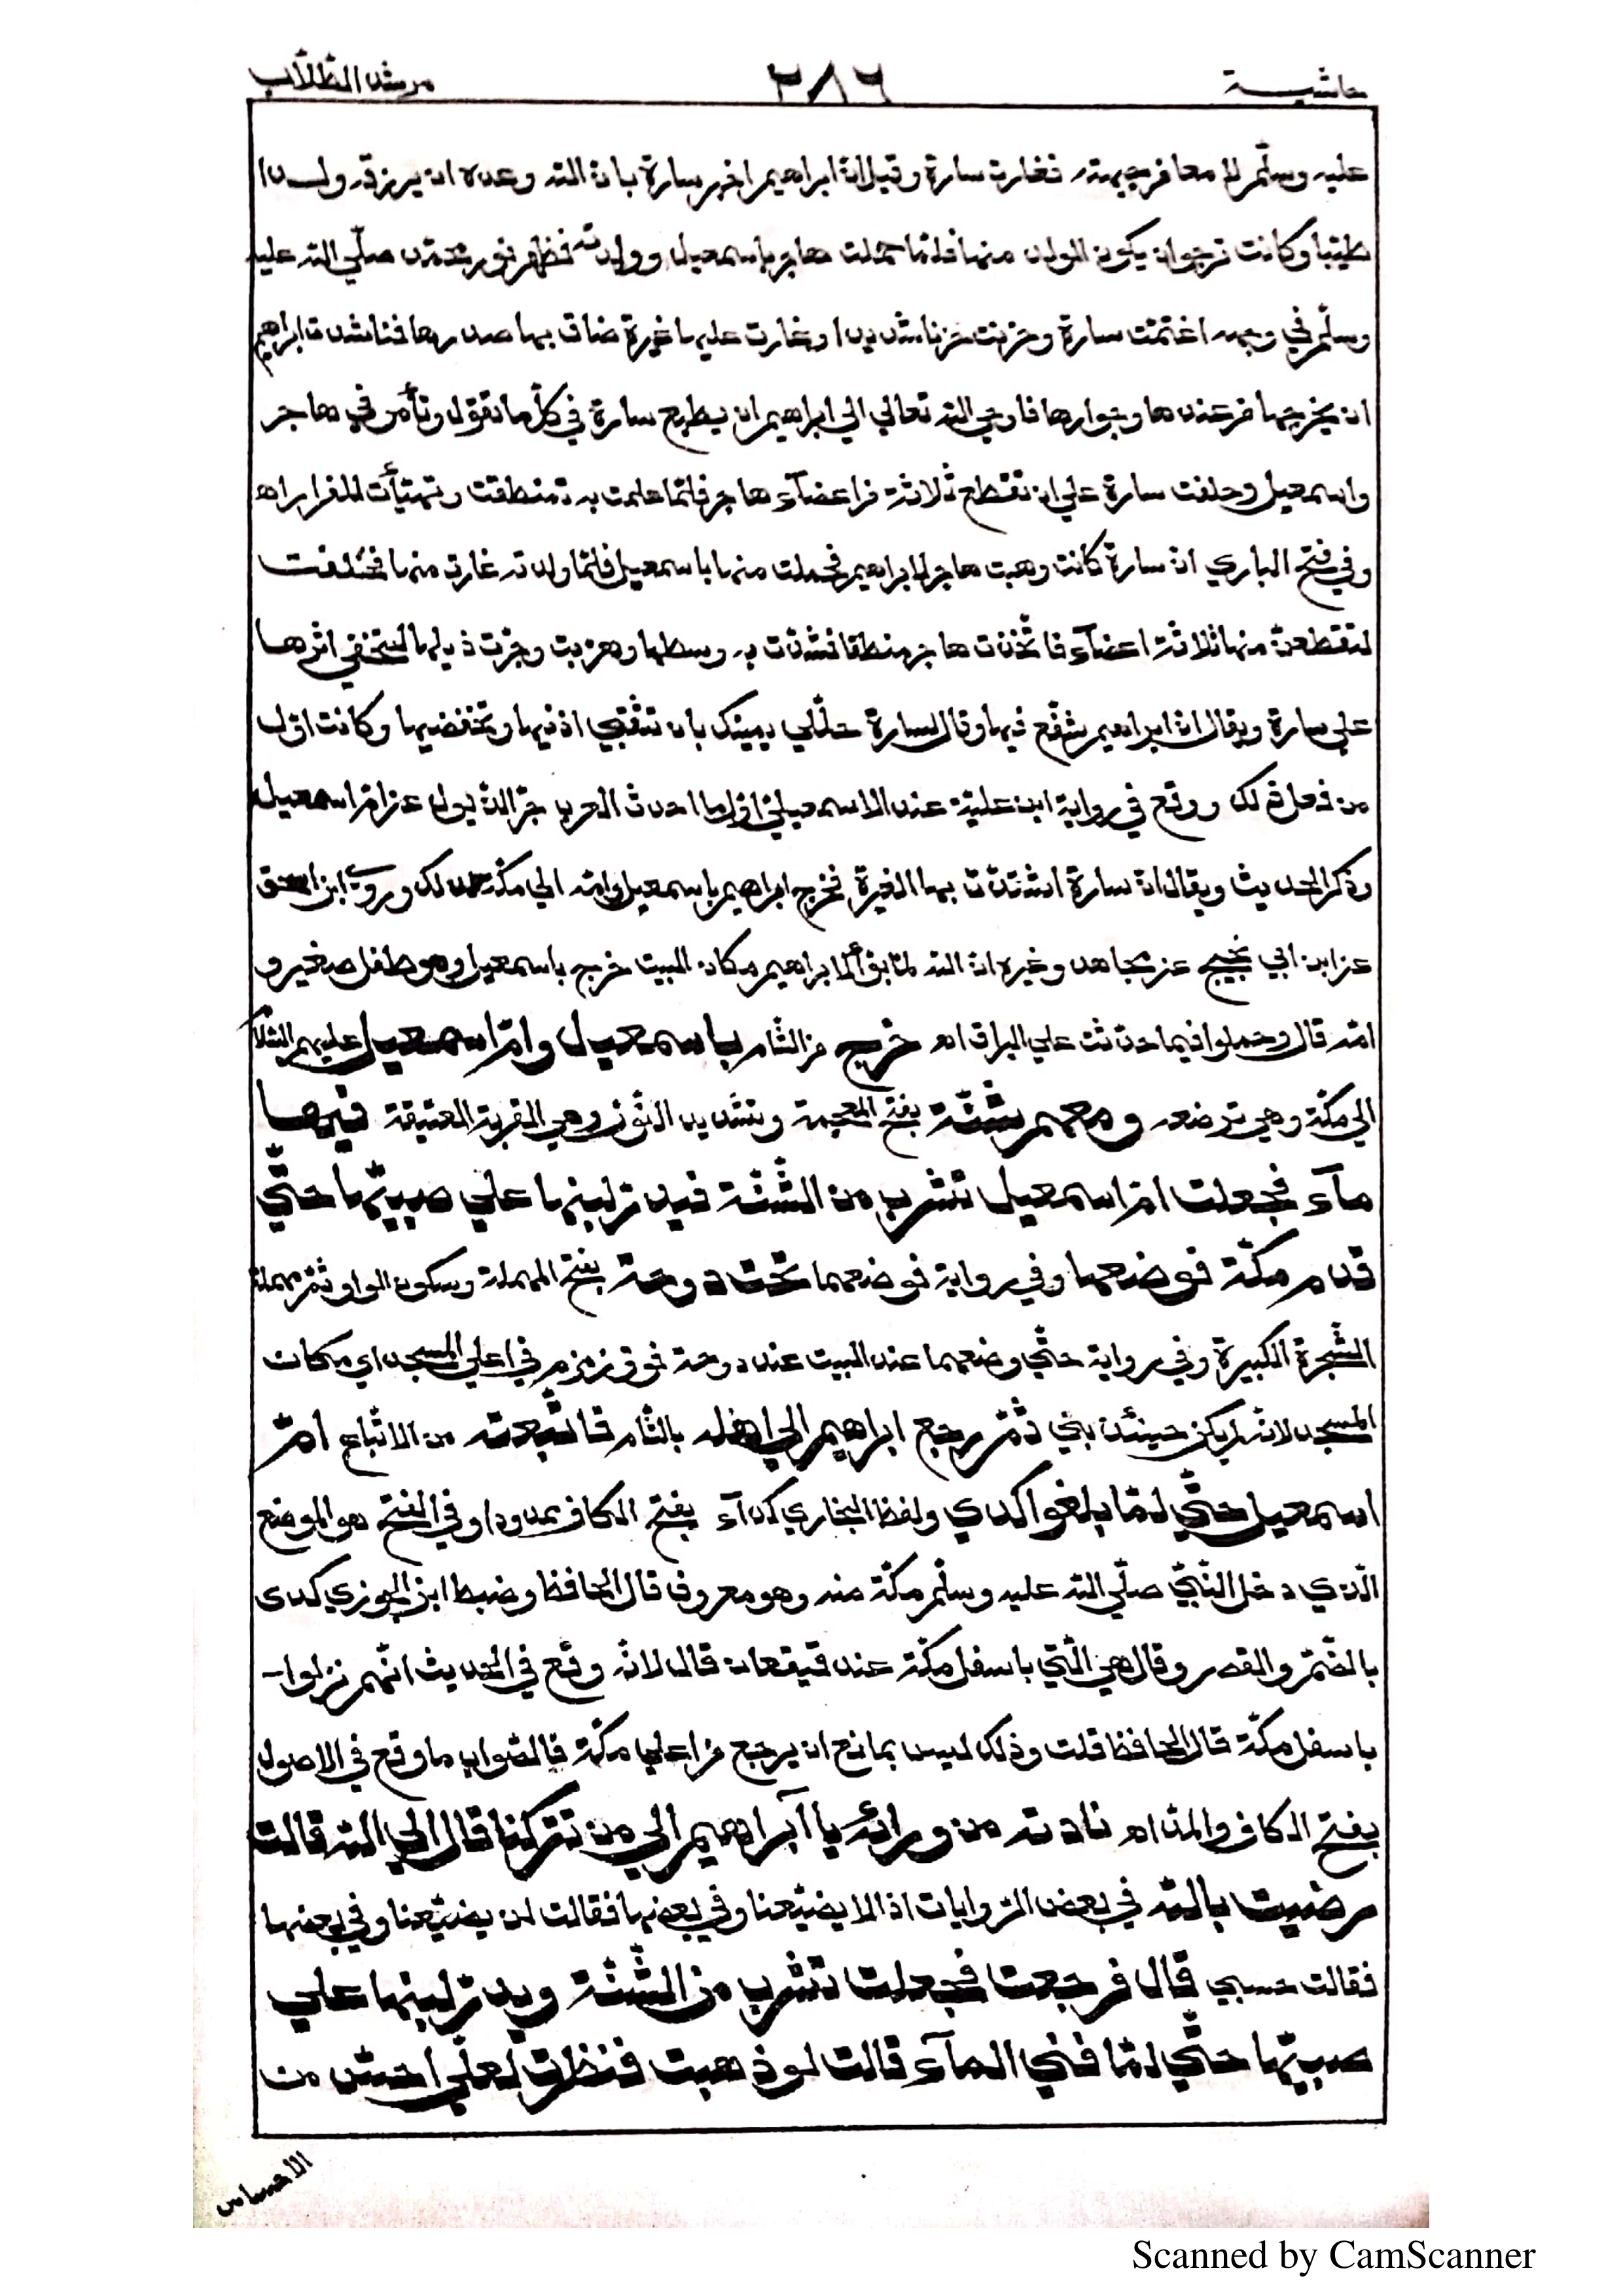 حاشية ٢٨٦ مرشد الطّلّاب
عليه وسلّم لامعا في جبهته فغارت سارة وقيل انّ ابراهيم اخبر سارة بانّ الله وعده ان يرزقه ولدا
طيّبا وكانت ترجو ان يكون الولد منها فلمّا حملت هاجر باسمعيل وولدته فظهر نور محمّد صلّي الله عليه
وسلّم في وجهه اغتمّت سارة وحزنت حزنا شديدا وغارت عليها غيرة ضاق بها صدرها فناشدت ابراهيم
ان يخرجها من عندها وجوارها فاوحي الله تعالي الي ابراهيم ان يطيع سارة في كلّ ما تقول وتأمر في هاجر
واسمعيل وحلفت سارة علي ان تقطع ثلاثة من اعضآء هاجر فلمّا علمت به تمنطقت وتهيّأت للفرار اه
وفي فتح الباري انّ سارة كانت وهبت هاجر لابراهيم فحملت منها باسمعيل فلمّا ولدته غارت منها فحلفت
لتقطعنّ منها ثلاثة اعضآء فاتّخذت هاجر منطقا فشدّت به وسطها وهربت وجرّت ذيلها لتخفي اثرها
علي سارة ويقال انّ ابراهيم شفّع فيها وقال لسارة حلّلي يمينك بان تثقبي اذنيها وتخفضيها وكانت اوّل
من فعل ذلك ووقع في رواية ابن عليّة عند الاسمعيليّ اوّل ما احدث العرب جرّ الذّيول عن امّ اسمعيل
وذكر الحديث ويقال انّ سارة اشتدّت بها الغيرة فخرج ابراهيم باسمعيل وامّه الي مكّة لذلك وروي ابن اسحق
عن ابن ابي نجيح عن مجاهد وغيره انّ الله لمّا بوّأ لابراهيم مكان البيت خرج باسمعيل وهو طفل صغير و
امّه قال وحملوا فيما حدّثت علي البراق اه خرج من الشّام باسمعيل وامّ اسمعيل عليهم السّلام
الي مكّة وهي ترضعه ومعهم شنّة بفتح المعجمة وتشديد النّون وهي القربة العتيقة فيها
مآء فجعلت امّ اسمعيل تشرب من الشّنّة فيدرّ لبنها علي صبيّها حتّي
قدم مكّة فوضعها وفي رواية فوضعهما تحت دوحة بفتح المهملة وسكون الواو ثمّ مهملة
الشّجرة الكبيرة وفي رواية حتّي وضعهما عند البيت عند دوحة فوق زمزم في اعلي المسجد اي مكان
المسجد لانّه لم يكن حينئذ بني ثمّ رجع ابراهيم الي اهله بالشّام فاتّبعته من الاتّباع امّ
اسمعيل حتّي لمّا بلغوا كدي ولفظ البخاري كدآء بفتح الكاف ممدودا وفي الفتح هو الموضع
الّذي دخل النّبيّ صلّي الله عليه وسلّم مكّة منه وهو معروف قال الحافظ وضبط ابن الجوزي كدى
بالضّمّ والقصر وقال هي الّتي باسفل مكّة عند قيقعان قال لانّه وقع في الحديث انّهم نزلوا-
باسفل مكّة قال الحافظ قلت وذلك ليس بمانع ان يرجع من اعلي مكّة فالصّواب ما وقع في الاصول
بفتح الكاف والمدّ اه نادته من ورائه يا آبراهيم الي من تتركنا قال الي الله قالت
رضيت بالله في بعض الرّوايات اذا لا يضيّعنا وفي بعضها فقالت لن يضيّعنا وفي بعضها
فقالت حسبي قال فرجعت فجعلت تشرب من الشّنّة ويدرّ لبنها علي
صبيّها حتّي لمّا فني المآء قالت لو ذهبت فنظرت لعلّي احسّ من
الاحساس
Scanned by CamScanner